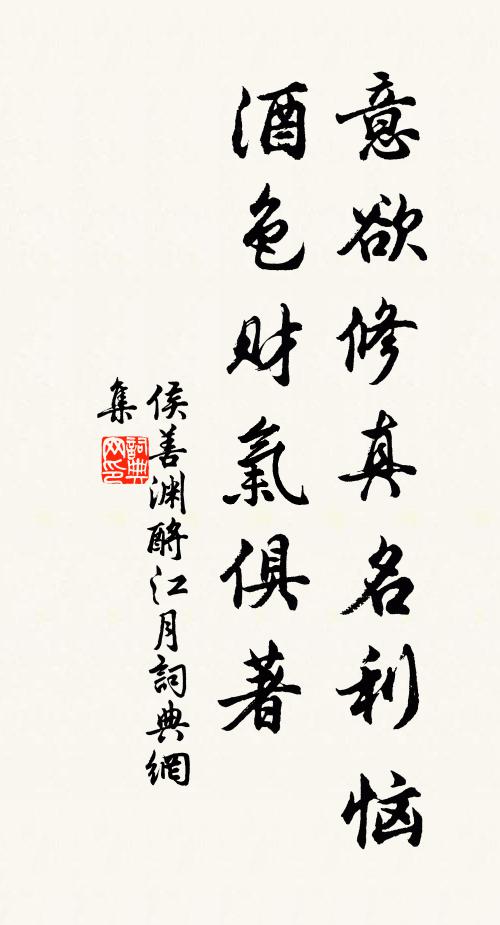 意欲修真名利恼
酒色财氣俱著
侯善渊酹江月詞典網
集
詞典
网印